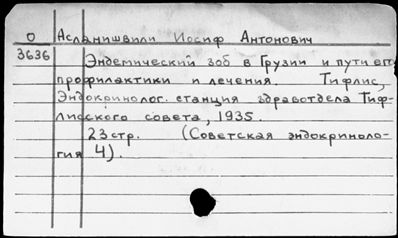 О Асланишвили Иосиф Антонович
3636 Эндемический зоб в Грузии и пути его
профилактики и лечения. Тифлис,
Эндокринолог. станция здравотдела Тиф-
лисского совета, 1935.
23 стр. (Советская эндокриноло-
гия 4).